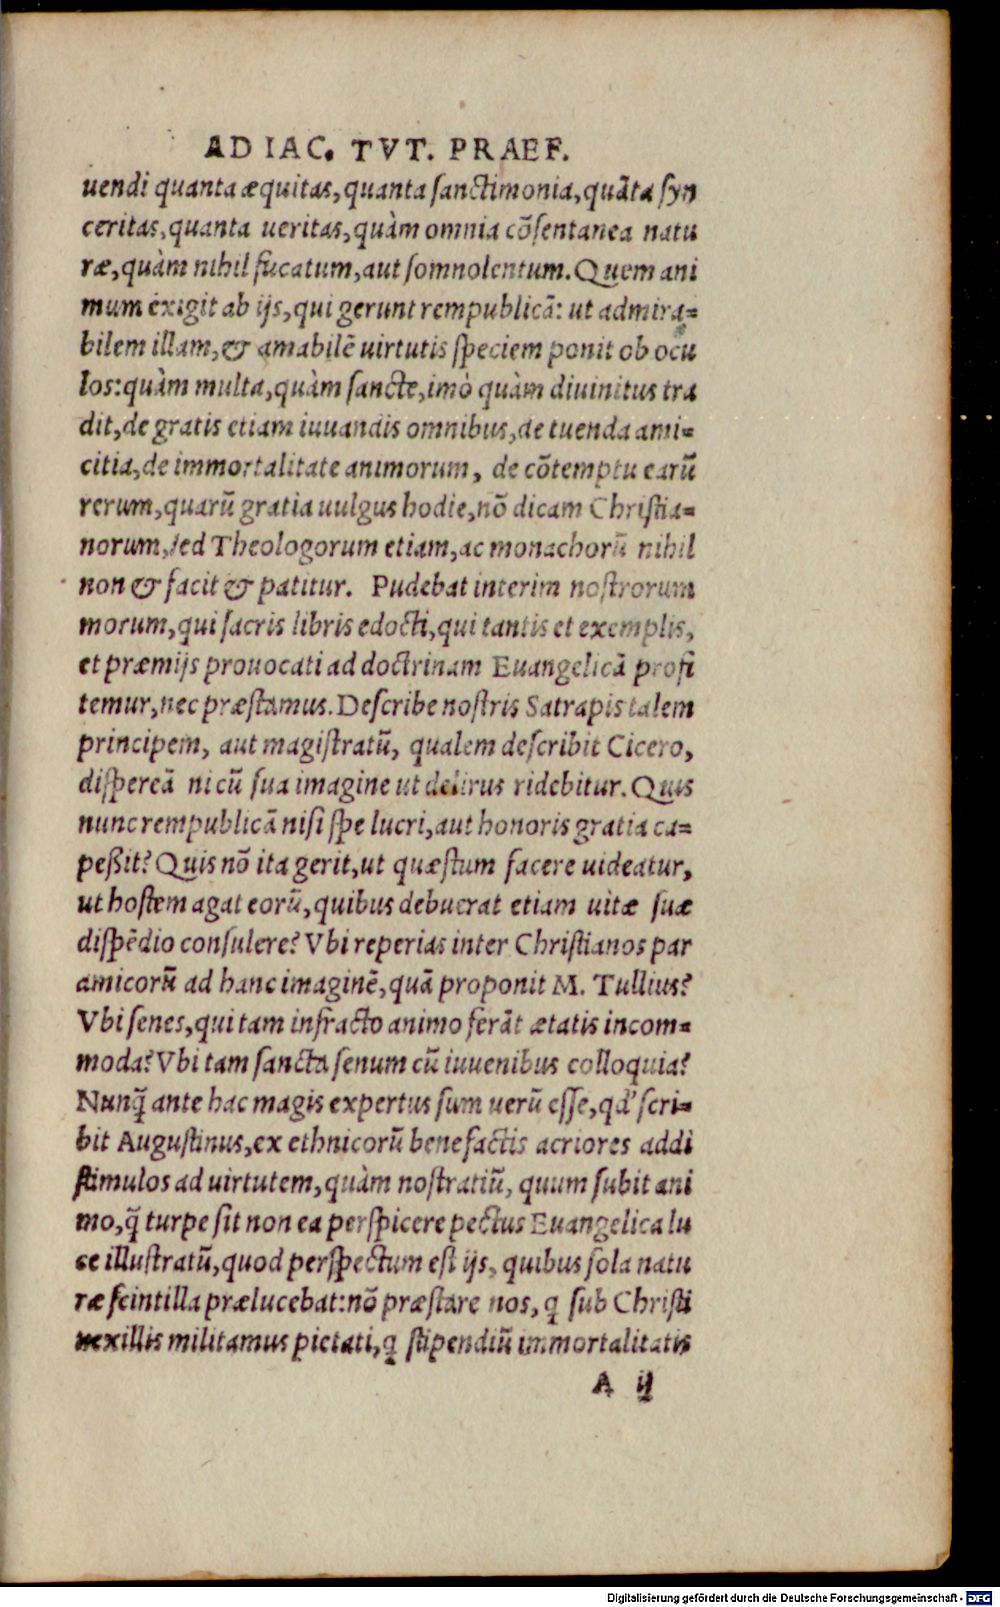 AD IAC. TVT. PRAEF.
uendi quanta æquitas, quanta sanctimonia, quãta syn
ceritas, quanta ueritas, quàm omnia cõsentanea natu
ræ, quàm nihil fucatum, aut somnolentum. Quem ani
mum exigit ab ijs, qui gerunt rempublicã: ut admira-
bilem illam, & amabilẽ uirtutis speciem ponit ob ocu
los: quàm multa, quàm sancte, imò quàm diuinitus tra
dit, de gratis etiam iuuandis omnibus, de tuenda ami-
citia, de immortalitate animorum, de cõtemptu earũ
rerum, quarũ gratia uulgus hodie, nõ dicam Christia-
norum, sed Theologorum etiam, ac monachorũ nihil
non & facit & patitur. Pudebat interim nostrorum
morum, qui sacris libris edocti, qui tantis et exemplis,
et præmijs prouocati ad doctrinam Euangelicã profi
temur, nec præstamus. Describe nostris Satrapis talem
principem, aut magistratũ, qualem describit Cicero,
dispereã ni cũ sua imagine ut delirus ridebitur. Quis
nunc rempublicã nisi spe lucri, aut honoris gratia ca-
peßit? Quis nõ ita gerit, ut quæstum facere uideatur,
ut hostem agat eorũ, quibus debuerat etiam uitæ suæ
dispẽdio consulere? Vbi reperias inter Christianos par
amicorũ ad hanc imaginẽ, quã proponit M. Tullius?
Vbi senes, qui tam infracto animo ferãt ætatis incom-
moda? Vbi tam sancta senum cũ iuuenibus colloquia?
Nunq̃ ante hac magis expertus sum uerũ esse, qd' scri-
bit Augustinus, ex ethnicorũ benefactis acriores addi
stimulos ad uirtutem, quàm nostratiũ, quum subit ani
mo, q̃ turpe sit non ea perspicere pectus Euangelica lu
ce illustratũ, quod perspectum est ijs, quibus sola natu
ræ scintilla prælucebat: nõ præstare nos, ꝗ sub Christi
uexillis militamus pietati, ꝗ stipendiũ immortalitatis
A ij
Digitalisierung gefördert durch die Deutsche Forschungsgemeinschaft - DFG